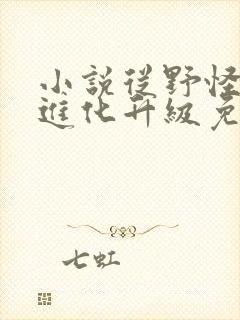 小說從野怪
進化升級免
七虹